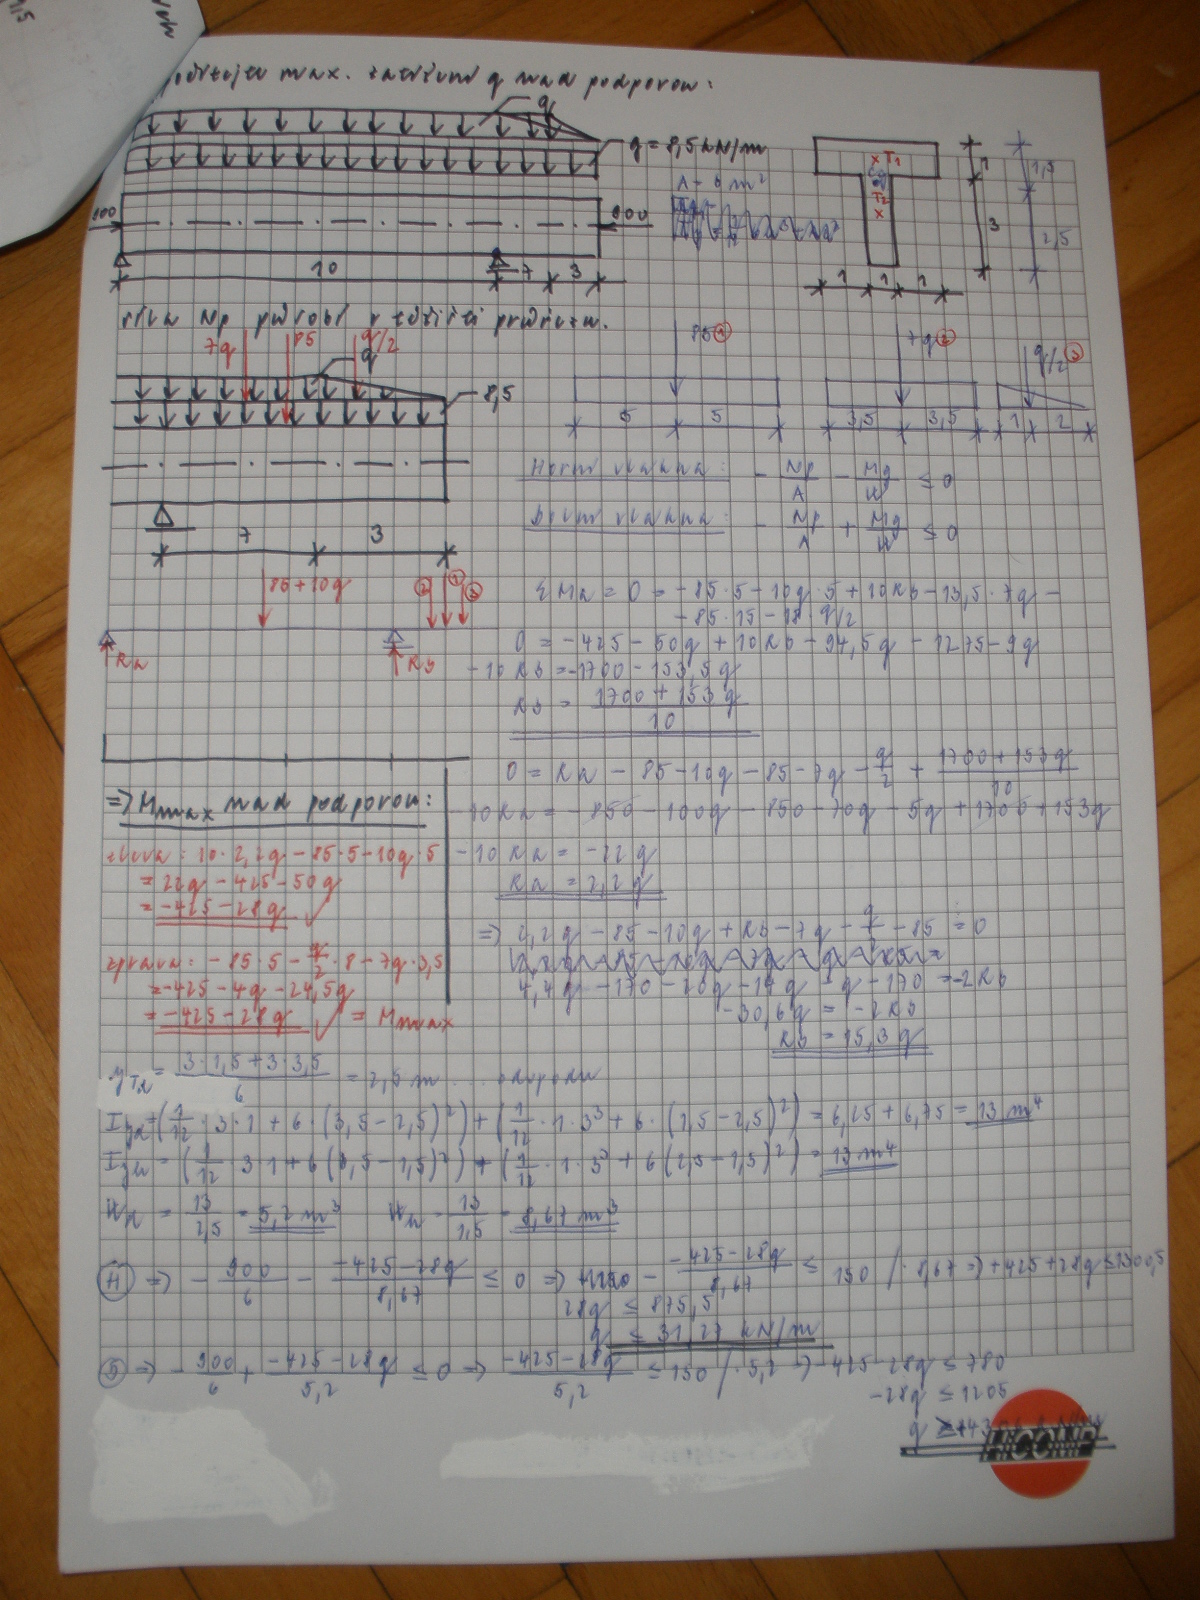 max. zatížení q nad podporou:
q
g = 8,5 kN/m
A = 6 m²
900
900
10
7
3
× T1
Cg
T2
×
1
3
1,5
2,5
1 1 1
síla Np působí v těžišti průřezu.
7q
85
q/2
q
8,5
85 ①
7q ②
q/2 ③
5 5
3,5 3,5
1 2
7 3
Horní vlákna: - Np/A - Mg/W ≤ 0
Dolní vlákna: - Np/A + Mg/W ≤ 0
85+10q
② ① ③
Ra
Rb
ΣMa = 0 = -85·5-10q·5+10Rb-13,5·7q-
-85·15-18·q/2
0 = -425-50q+10Rb-94,5q-1275-9q
-10Rb = -1700-153,5q
Rb = (1700+153q)/10
0 = Ra - 85-10q-85-7q-q/2 + (1700+153q)/10
-10Ra = -850-100q-850-70q-5q+1700+153q
-10Ra = -22q
Ra = 2,2q
=> Mmax nad podporou:
zleva: 10·2,2q-85·5-10q·5
= 22q-425-50q
= -425-28q ✓
zprava: -85·5-q/2·8-7q·3,5
= -425-4q-24,5q
= -425-28q ✓ = Mmax
=> 2,2q-85-10q+Rb-7q-q/2-85 = 0
4,4q-170-20q-14q-q-170 = -2Rb
-30,6q = -2Rb
Rb = 15,3q
yTd = (3·1,5+3·3,5)/6 = 2,5 m
Iyd = (1/12·3·1+6(3,5-2,5)²)+(1/12·1·3³+6·(1,5-2,5)²) = 6,25+6,75 = 13 m⁴
= 13 m⁴
Wd = 13/2,5 = 5,2 m³ Wh = 13/1,5 = 8,67 m³
Ⓗ => - 900/6 - (-425-28q)/8,67 ≤ 0 => - (-425-28q)/8,67 ≤ 150 /·8,67 => +425+28q ≤ 1300,5
28q ≤ 875,5
q ≤ 31,27 kN/m
Ⓓ => - 900/6 + (-425-28q)/5,2 ≤ 0 => (-425-28q)/5,2 ≤ 150 /·5,2 => -425-28q ≤ 780
-28q ≤ 1205
HICOMP